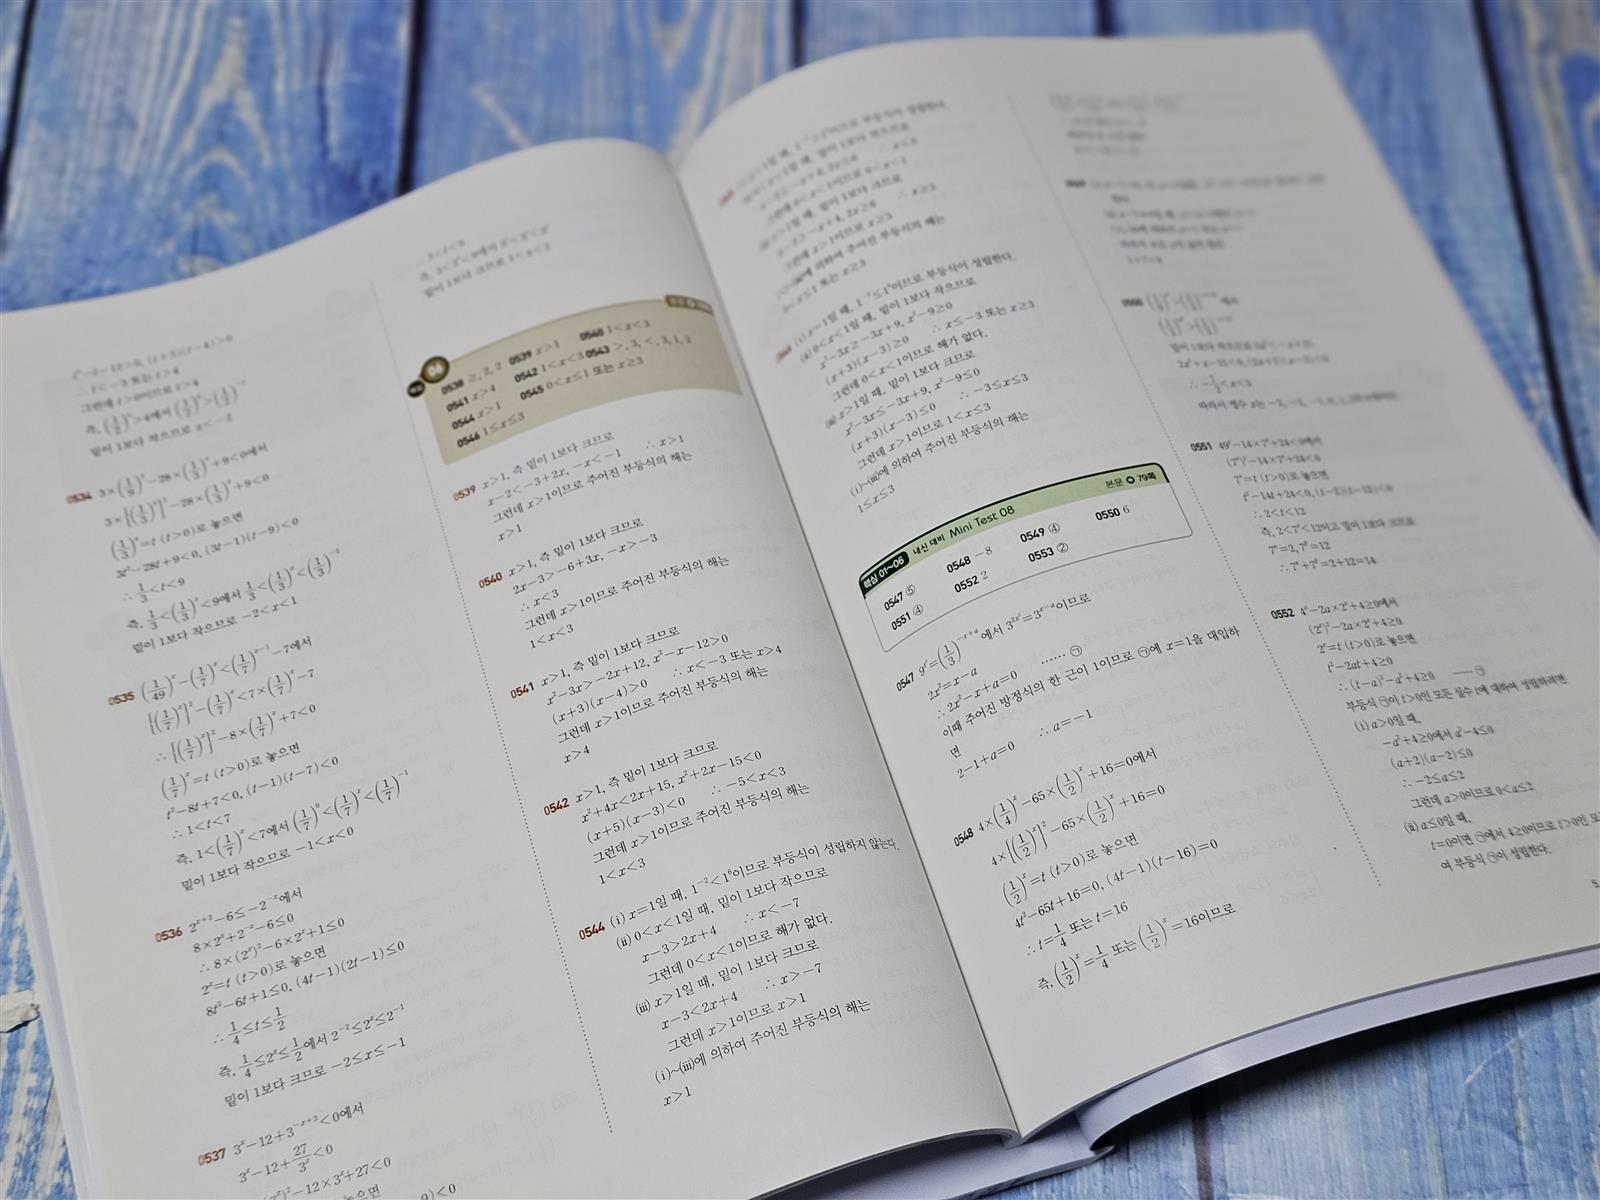 t²-t-12>0, (t+3)(t-4)>0
∴ t<-3 또는 t>4
그런데 t>0이므로 t>4
즉, (1/2)ˣ>4에서 (1/2)ˣ>(1/2)⁻²
밑이 1보다 작으므로 x<-2
0534 3×(1/9)ˣ-28×(1/3)ˣ+9<0에서
3×[(1/3)ˣ]²-28×(1/3)ˣ+9<0
(1/3)ˣ=t (t>0)로 놓으면
3t²-28t+9<0, (3t-1)(t-9)<0
∴ 1/3<t<9
즉, 1/3<(1/3)ˣ<9에서 1/3<(1/3)ˣ<(1/3)⁻²
밑이 1보다 작으므로 -2<x<1
0535 (1/49)ˣ-(1/7)ˣ<(1/7)ˣ⁻¹-7에서
[(1/7)ˣ]²-(1/7)ˣ<7×(1/7)ˣ-7
∴ [(1/7)ˣ]²-8×(1/7)ˣ+7<0
(1/7)ˣ=t (t>0)로 놓으면
t²-8t+7<0, (t-1)(t-7)<0
∴ 1<t<7
즉, 1<(1/7)ˣ<7에서 (1/7)⁰<(1/7)ˣ<(1/7)⁻¹
밑이 1보다 작으므로 -1<x<0
0536 2ˣ⁺³-6≤-2⁻ˣ에서
8×2ˣ+2⁻ˣ-6≤0
∴ 8×(2ˣ)²-6×2ˣ+1≤0
2ˣ=t (t>0)로 놓으면
8t²-6t+1≤0, (4t-1)(2t-1)≤0
∴ 1/4≤t≤1/2
즉, 1/4≤2ˣ≤1/2에서 2⁻²≤2ˣ≤2⁻¹
밑이 1보다 크므로 -2≤x≤-1
0537 3ˣ-12+3⁻ˣ⁺³<0에서
3ˣ-12+27/3ˣ<0
(3ˣ)²-12×3ˣ+27<0
놓으면
∴ 3<t<9
즉, 3<3ˣ<9에서 3¹<3ˣ<3²
밑이 1보다 크므로 1<x<2
0538 ≥, 2, 2 0539 x>1 0540 1<x<3
0541 x>4 0542 1<x<3 0543 >, 3, <, 3, 1, 3
0544 x>1 0545 0<x≤1 또는 x≥3
0546 1≤x≤3
0539 x>1, 즉 밑이 1보다 크므로
x-2<-3+2x, -x<-1 ∴ x>1
그런데 x>1이므로 주어진 부등식의 해는
x>1
0540 x>1, 즉 밑이 1보다 크므로
2x-3>-6+3x, -x>-3
∴ x<3
그런데 x>1이므로 주어진 부등식의 해는
1<x<3
0541 x>1, 즉 밑이 1보다 크므로
x²-3x>-2x+12, x²-x-12>0
(x+3)(x-4)>0 ∴ x<-3 또는 x>4
그런데 x>1이므로 주어진 부등식의 해는
x>4
0542 x>1, 즉 밑이 1보다 크므로
x²+4x<2x+15, x²+2x-15<0
(x+5)(x-3)<0 ∴ -5<x<3
그런데 x>1이므로 주어진 부등식의 해는
1<x<3
0544 (ⅰ) x=1일 때, 1⁻²<1⁶이므로 부등식이 성립하지 않는다.
(ⅱ) 0<x<1일 때, 밑이 1보다 작으므로
x-3>2x+4 ∴ x<-7
그런데 0<x<1이므로 해가 없다.
(ⅲ) x>1일 때, 밑이 1보다 크므로
x-3<2x+4 ∴ x>-7
그런데 x>1이므로 x>1
(ⅰ)~(ⅲ)에 의하여 주어진 부등식의 해는
x>1
그런데 0<x<1이므로 0<x<1
그런데 x>1이므로 x≥3
0<x≤1 또는 x≥3
(ⅰ) x=1일 때, 1⁻²≤1⁶이므로 부등식이 성립한다.
(ⅱ) 0<x<1일 때, 밑이 1보다 작으므로
x²-3x≥-3x+9, x²-9≥0
(x+3)(x-3)≥0 ∴ x≤-3 또는 x≥3
그런데 0<x<1이므로 해가 없다.
(ⅲ) x>1일 때, 밑이 1보다 크므로
x²-3x≤-3x+9, x²-9≤0
(x+3)(x-3)≤0 ∴ -3≤x≤3
그런데 x>1이므로 1<x≤3
(ⅰ)~(ⅲ)에 의하여 주어진 부등식의 해는
1≤x≤3
핵심 01~06 내신 대비 Mini Test 08 본문 79쪽
0547 ⑤ 0548 -8 0549 ④ 0550 6
0551 ④ 0552 2 0553 ②
0547 9ˣ²=(1/3)⁻ˣ⁺ᵃ에서 3²ˣ²=3ˣ⁻ᵃ이므로
2x²=x-a
∴ 2x²-x+a=0 …… ㉠
이때 주어진 방정식의 한 근이 1이므로 ㉠에 x=1을 대입하
면
2-1+a=0 ∴ a=-1
0548 4×(1/4)ˣ-65×(1/2)ˣ+16=0에서
4×[(1/2)ˣ]²-65×(1/2)ˣ+16=0
(1/2)ˣ=t (t>0)로 놓으면
4t²-65t+16=0, (4t-1)(t-16)=0
∴ t=1/4 또는 t=16
즉, (1/2)ˣ=1/4 또는 (1/2)ˣ=16이므로
0550
밑이 1보다 작으므로
∴ -5/2<x<3
0551 49ˣ-14×7ˣ+24<0에서
(7ˣ)²-14×7ˣ+24<0
7ˣ=t (t>0)로 놓으면
t²-14t+24<0, (t-2)(t-12)<0
∴ 2<t<12
즉, 2<7ˣ<12이고 밑이 1보다 크므로
7ᵅ=2, 7ᵝ=12
∴ 7ᵅ+7ᵝ=2+12=14
0552 4ˣ-2a×2ˣ+4≥0에서
(2ˣ)²-2a×2ˣ+4≥0
2ˣ=t (t>0)로 놓으면
t²-2at+4≥0
∴ (t-a)²-a²+4≥0 …… ㉠
부등식 ㉠이 t>0인 모든 실수 t에 대하여 성립하려면
(ⅰ) a>0일 때,
-a²+4≥0에서 a²-4≤0
(a+2)(a-2)≤0
∴ -2≤a≤2
그런데 a>0이므로 0<a≤2
(ⅱ) a≤0일 때,
t=0이면 ㉠에서 4≥0이므로 t>0인 모
여 부등식 ㉠이 성립한다.